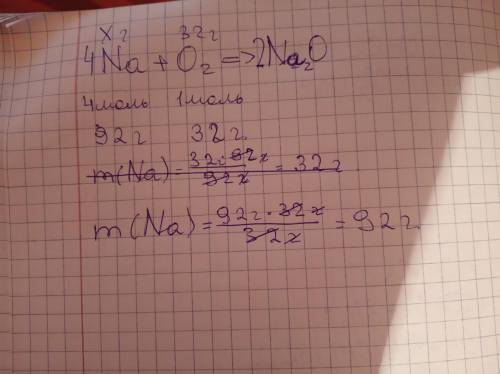 x г 32 г
4Na + O₂ => 2Na₂O
4 моль 1 моль
92 г 32 г
m(Na) = 32г·92г / 92г = 32 г
m(Na) = 92г·32г / 32г = 92 г